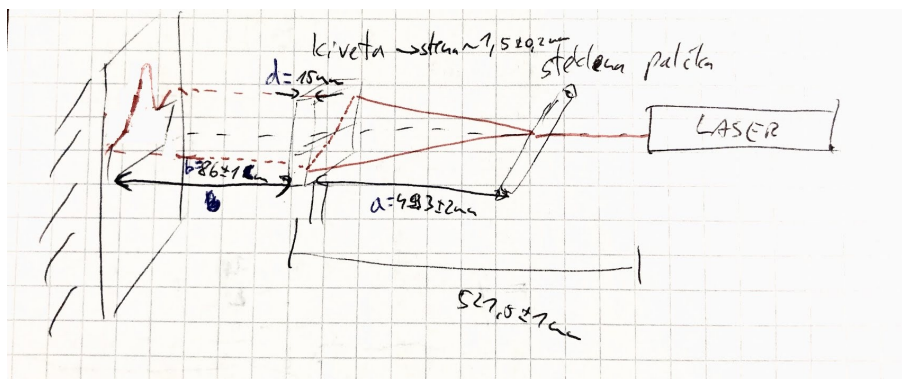 kiveta → stena ~ 1,5 ± 0,2 mm
steklena palčka
d = 15 mm
LASER
b = 86 ± 1 cm
a = 493 ± 2 mm
521,0 ± 1 mm